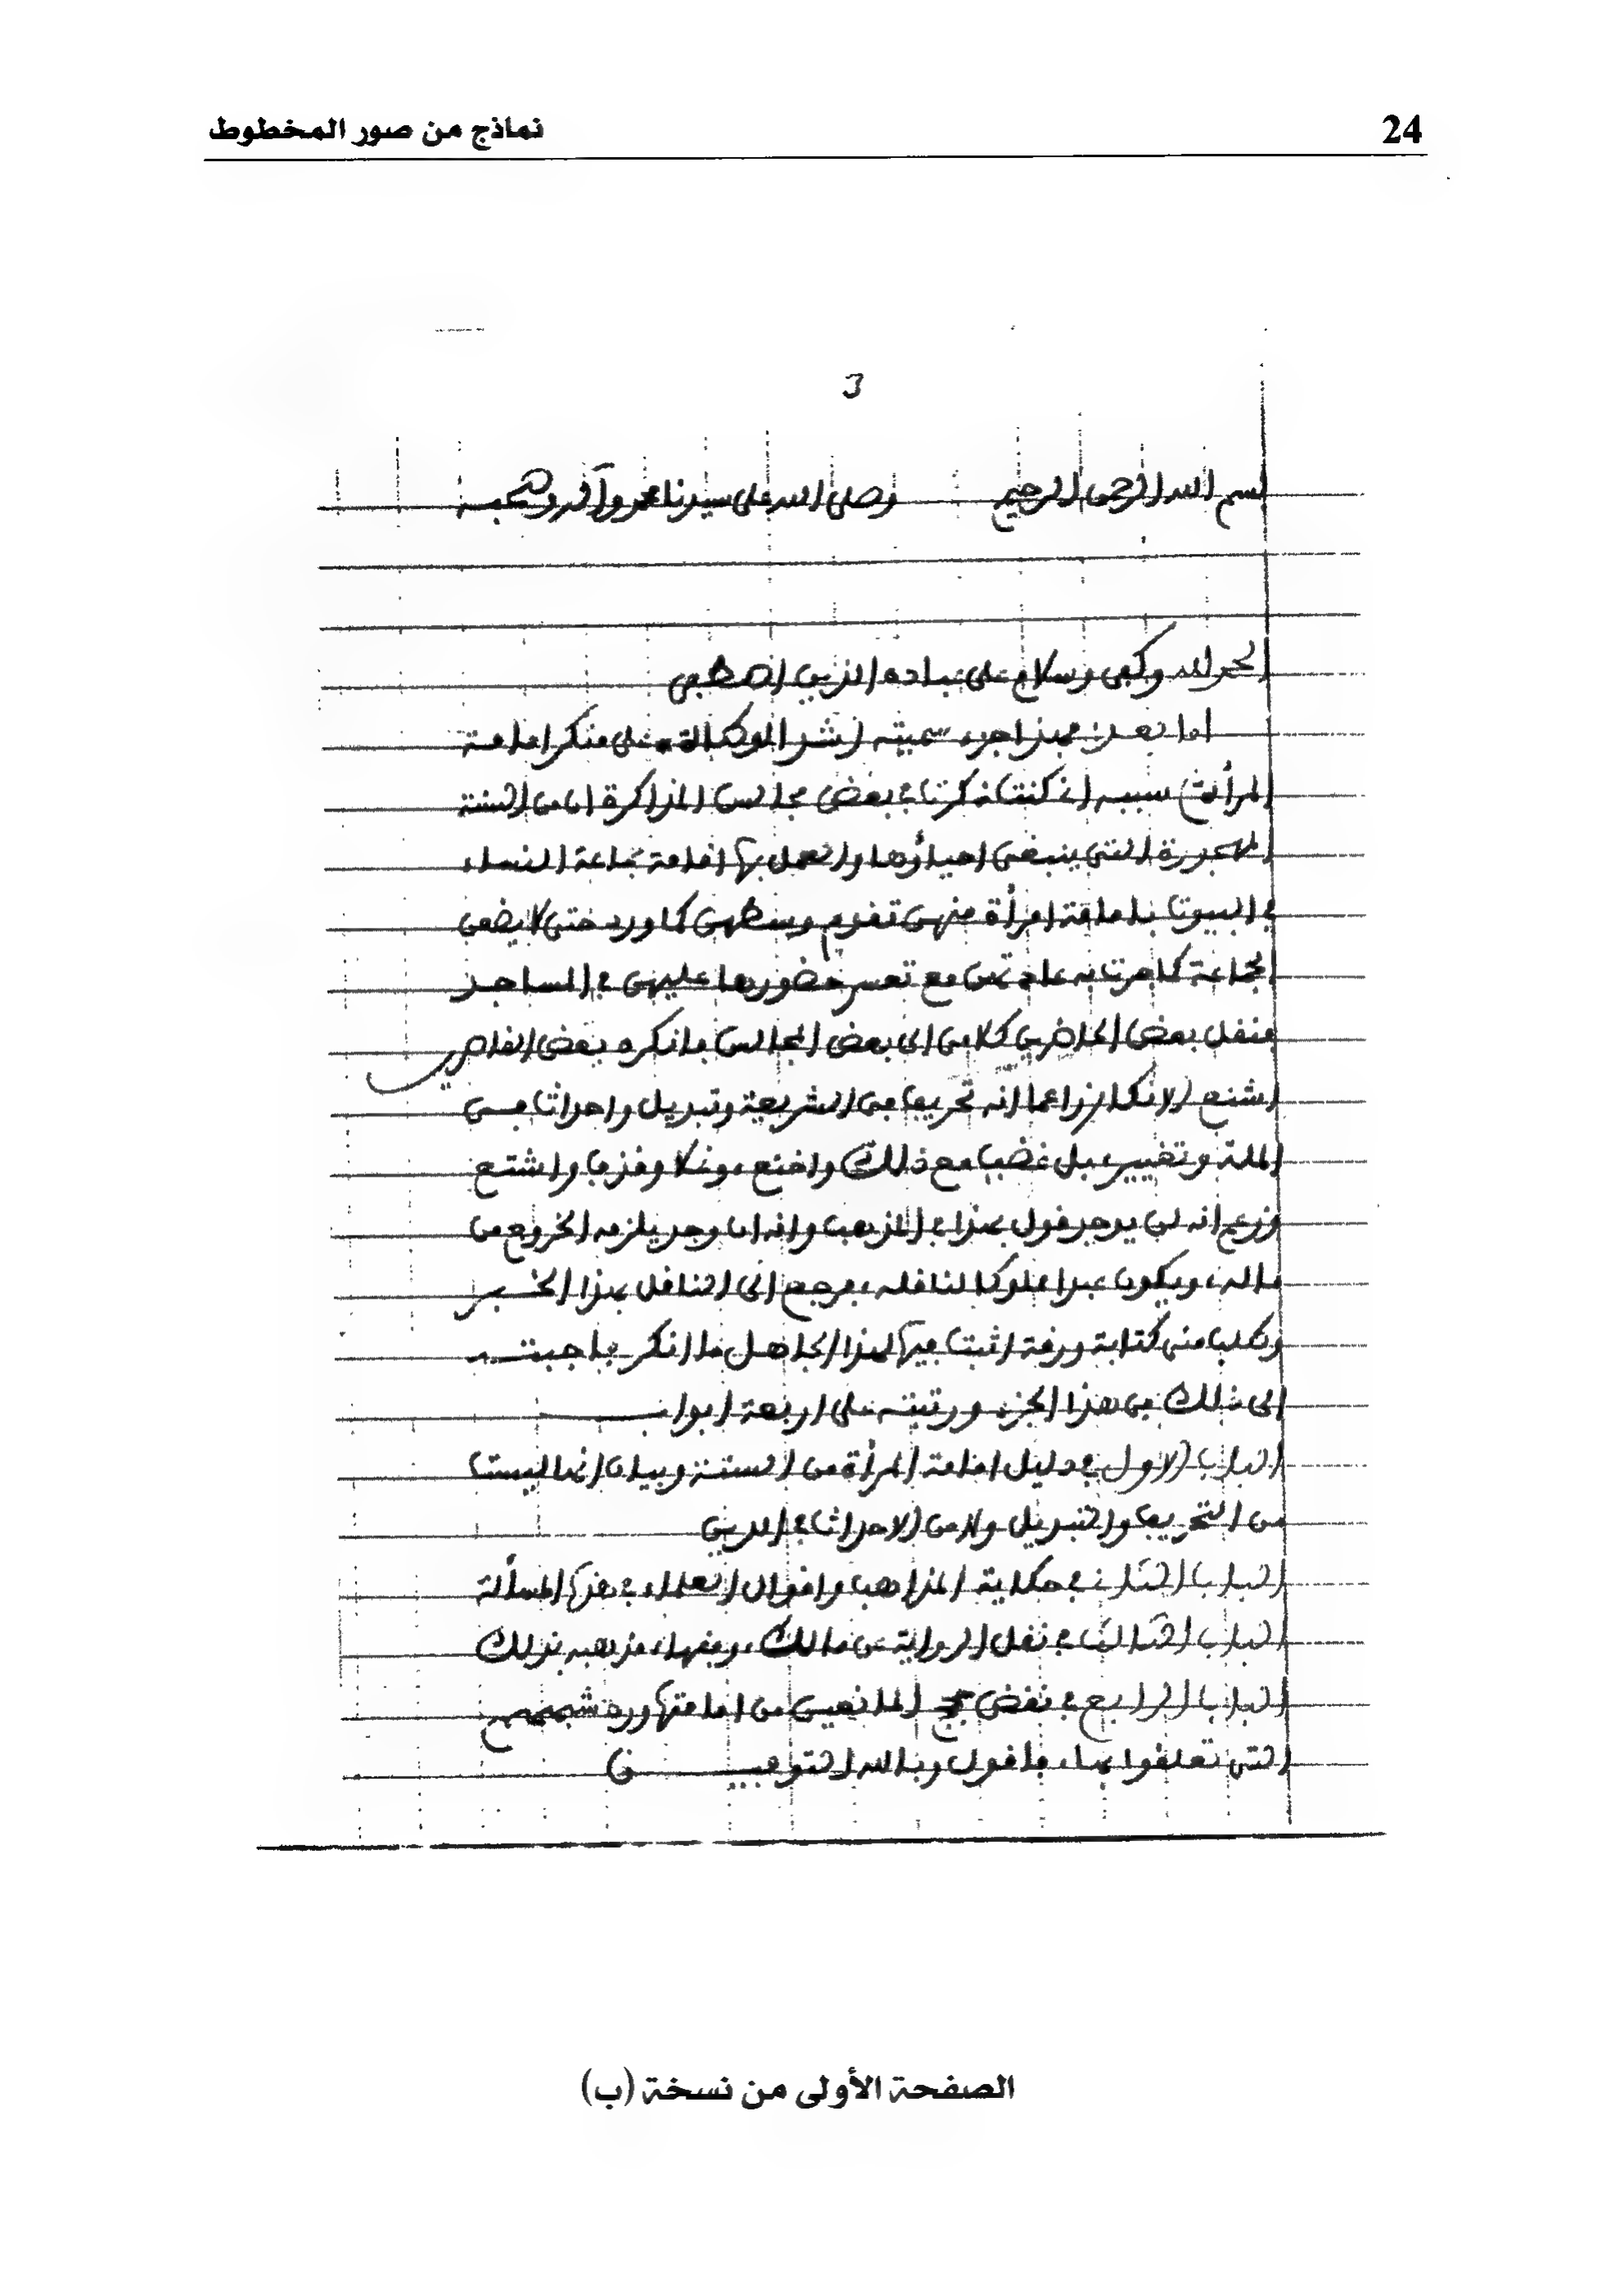 24
نماذج من صور المخطوط
3
بسم الله الرحمن الرحيم وصلى الله على سيدنا محمد وآله وصحبه
الحمد لله وكفى وسلام على عباده الذين اصطفى
اما بعد فهذا جزء سميته على منكر امامة
المرأة سببه اني كنت ذكرت في بعض مجالس المذاكرة ان من السنة
المهجورة التي ينبغي احياؤها والعمل بها اقامة جماعة النساء
في البيوت بامامة امرأة منهن تقوم وسطهن كما ورد حتى لا يضعن
الجماعة كما جرت به عادتهن مع تعسر حضورها عليهن في المساجد
فنقل بعض الحاضرين كلامي الى بعض المجالس فانكره بعض القاصرين
اشنع الانكار زاعما انه تحريف في الشريعة وتبديل واحداث في
الملة وتغيير، بل غضب مع ذلك
وزعم انه لن يوجد قول بهذا في المذهب وانه ان وجد يلزمه الخروج من
ماله، ويكون عبدا مملوكا لناقله، فرجع الي الناقل بهذا الخبر
وطلب مني كتابة ورقة اثبت فيها لهذا الجاهل ما انكر فاجبته
الى ذلك في هذا الجزء ورتبته على اربعة ابواب
الباب الاول في دليل امامة المرأة من السنة وبيان انها ليست
من التحريف والتبديل ولا من الاحداث في الدين
الباب الثاني في حكاية المذاهب واقوال العلماء في هذه المسألة
الباب الثالث في نقل الرواية عن مالك، وفقهاء مذهبه بذلك
الباب الرابع في نقض حجج المانعين من امامتها ورد شبههم
التي تعلقوا بها، فاقول وبالله التوفيق
الصفحة الأولى من نسخة (ب)